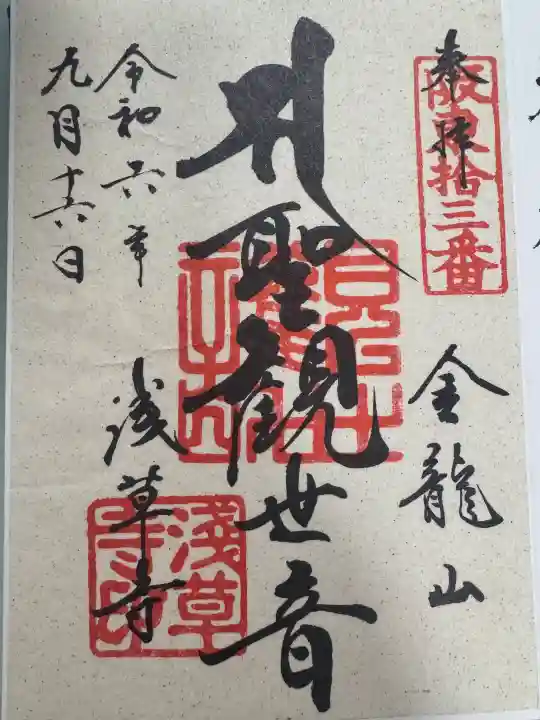 奉拝
阪東拾三番
金龍山
聖観世音
浅草寺
淺草寺印
令和六年
九月十六日